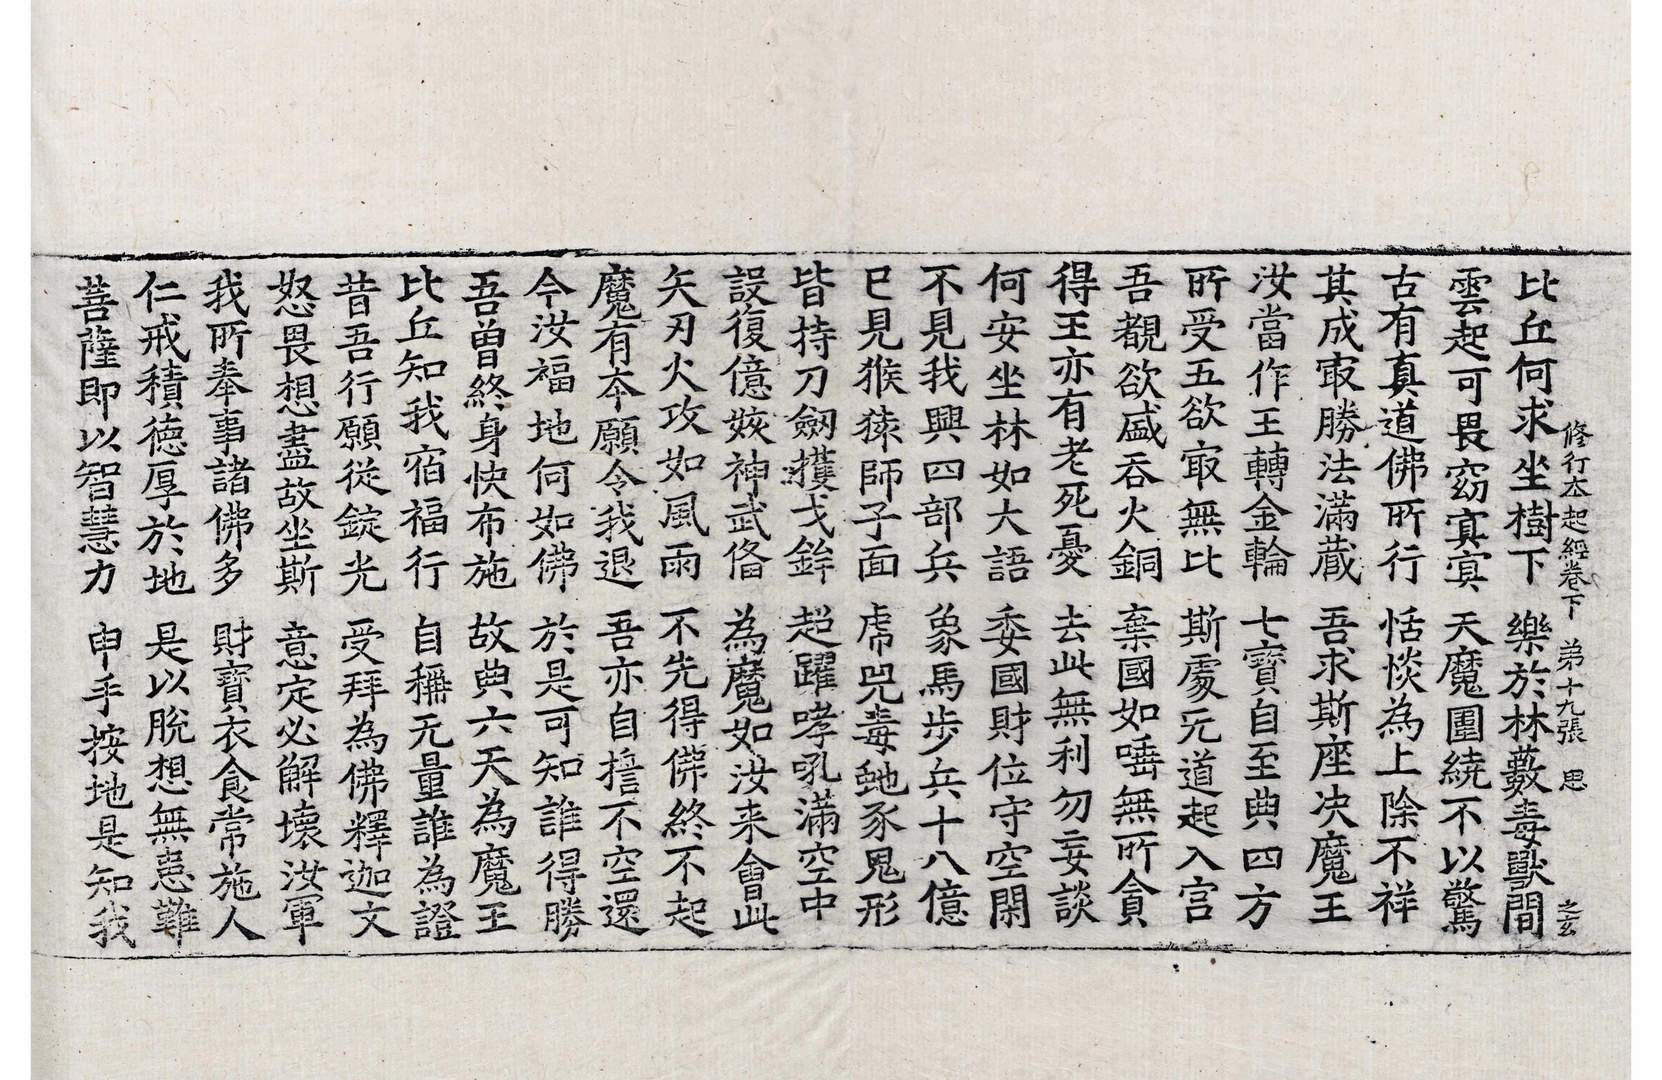 修行本起經卷下　弟十九張　思　之玄
比丘何求坐樹下　樂於林藪毒獸間
雲起可畏窈冥冥　天魔圍繞不以驚
古有真道佛所行　恬惔為上除不祥
其成㝡勝法滿藏　吾求斯座决魔王
汝當作王轉金輪　七寶自至典四方
所受五欲㝡無比　斯處无道起入宫
吾覩欲盛吞火銅　棄國如唾無所貪
得王亦有老死憂　去此無利勿妄談
何安坐林如大語　委國財位守空閑
不見我興四部兵　象馬步兵十八億
已見猴猨師子面　虎兕毒虵豕鬼形
皆持刀劒擭戈鉾　超躍哮吼滿空中
設復億姟神武俻　為魔如汝来會此
矢刃火攻如風雨　不先得佛終不起
魔有夲願令我退　吾亦自誓不空還
今汝福地何如佛　於是可知誰得勝
吾曽終身快布施　故典六天為魔王
比丘知我宿福行　自稱无量誰為證
昔吾行願從錠光　受拜為佛釋迦文
怒畏想盡故坐斯　意定必解壞汝軍
我所奉事諸佛多　財寶衣食常施人
仁戒積德厚於地　是以脫想無患難
菩薩即以智慧力　申手按地是知我